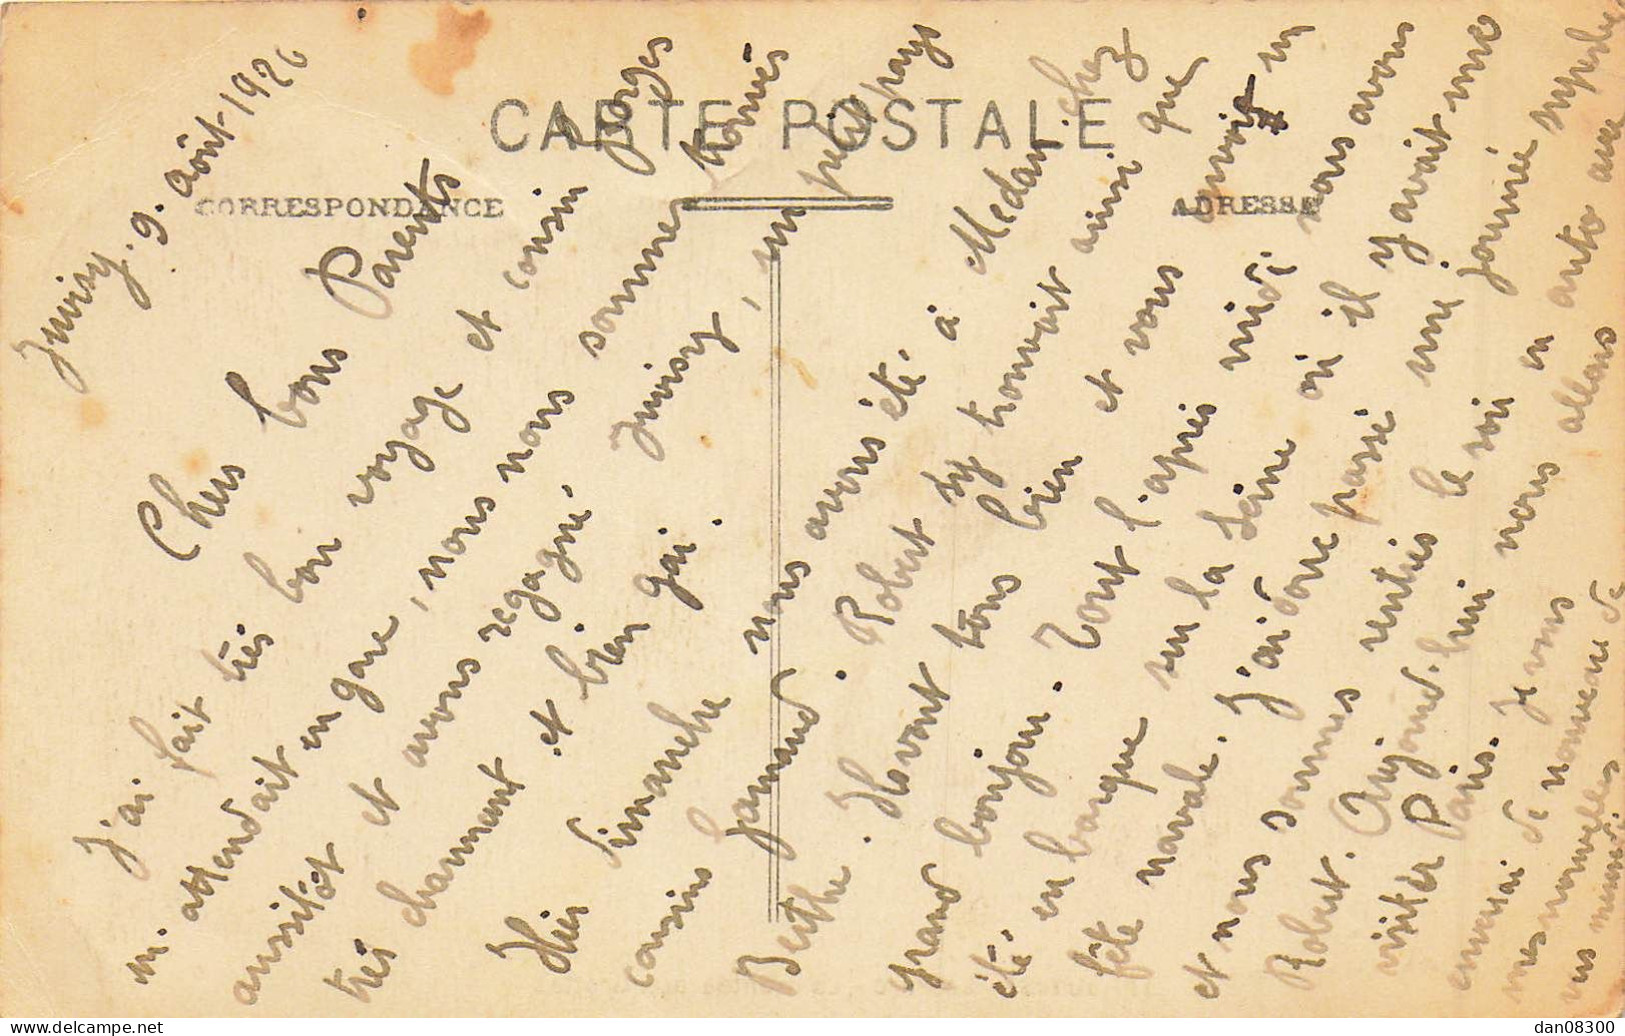 CARTE POSTALE
CORRESPONDANCE
ADRESSE
Juvisy. 9. Août 1926
Chers bons Parents
J'ai fait très bon voyage et cousin Georges
m'attendait en gare, nous nous sommes trouvés
aussitôt et avons regagné Juvisy, un petit pays
très charmant et bien gai.
Hier dimanche nous avons été à Médan chez
cousins Berthe. Robert s'y trouvait ainsi que
Ils vont tous bien et vous envoient un
grand bonjour. Tout l'après midi nous avons
été en barque sur la Seine où il y avait une
fête navale. J'ai donc passé une journée superbe
et nous sommes rentrés le soir en auto avec
Robert. Aujourd'hui nous allons
visiter Paris. Je vous
enverrai de nouveau de
mes nouvelles